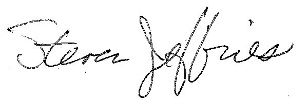 Steven Jeffries